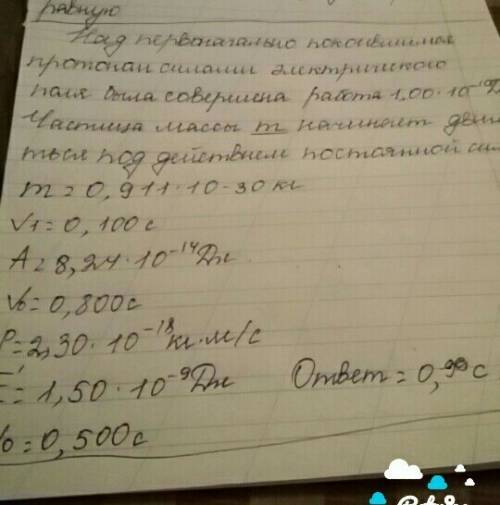 равную
Над первоначально покоившимся
протоном силами электрического
поля была совершена работа 1,00·10⁻¹⁰
Частица массы m начинает
ться под действием постоянной
m = 0,911·10-30 кг
V1 = 0,100 с
A = 8,24·10⁻¹⁴ Дж
V0 = 0,800 с
P = 2,30·10⁻¹⁸ кг·м/с
E = 1,50·10⁻⁹ Дж Ответ = 0,99 с
= 0,500 с